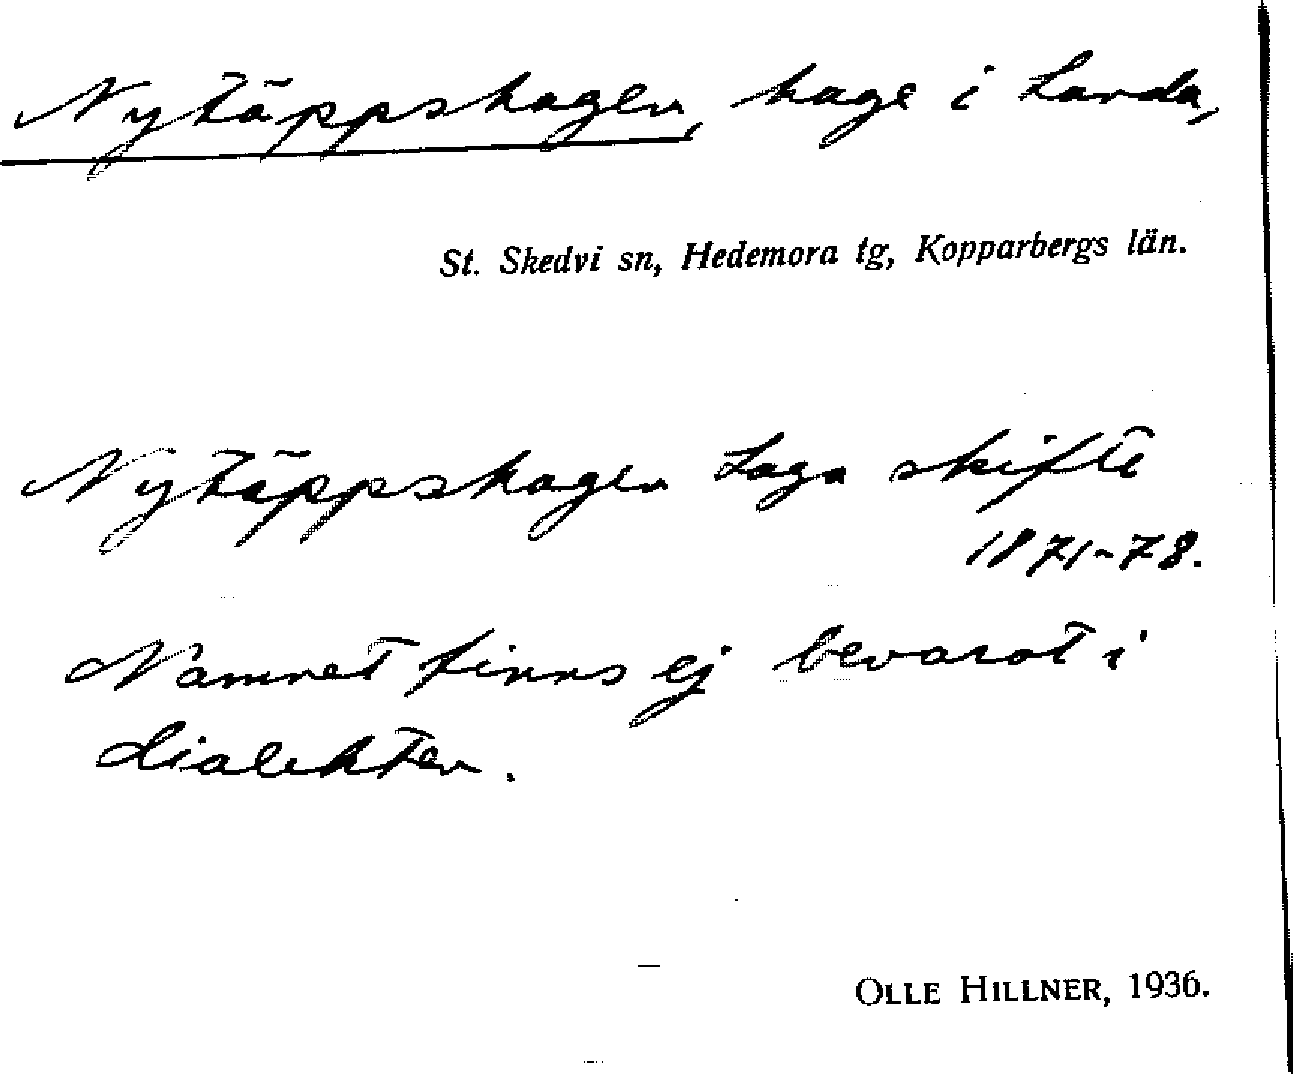 Nytäppshagen, hage i Landa,
St. Skedvi sn, Hedemora tg, Kopparbergs län.
Nytäppshagen Laga skifte
1871-78.
Namnet finns ej bevarat i
dialekten.
OLLE HILLNER, 1936.